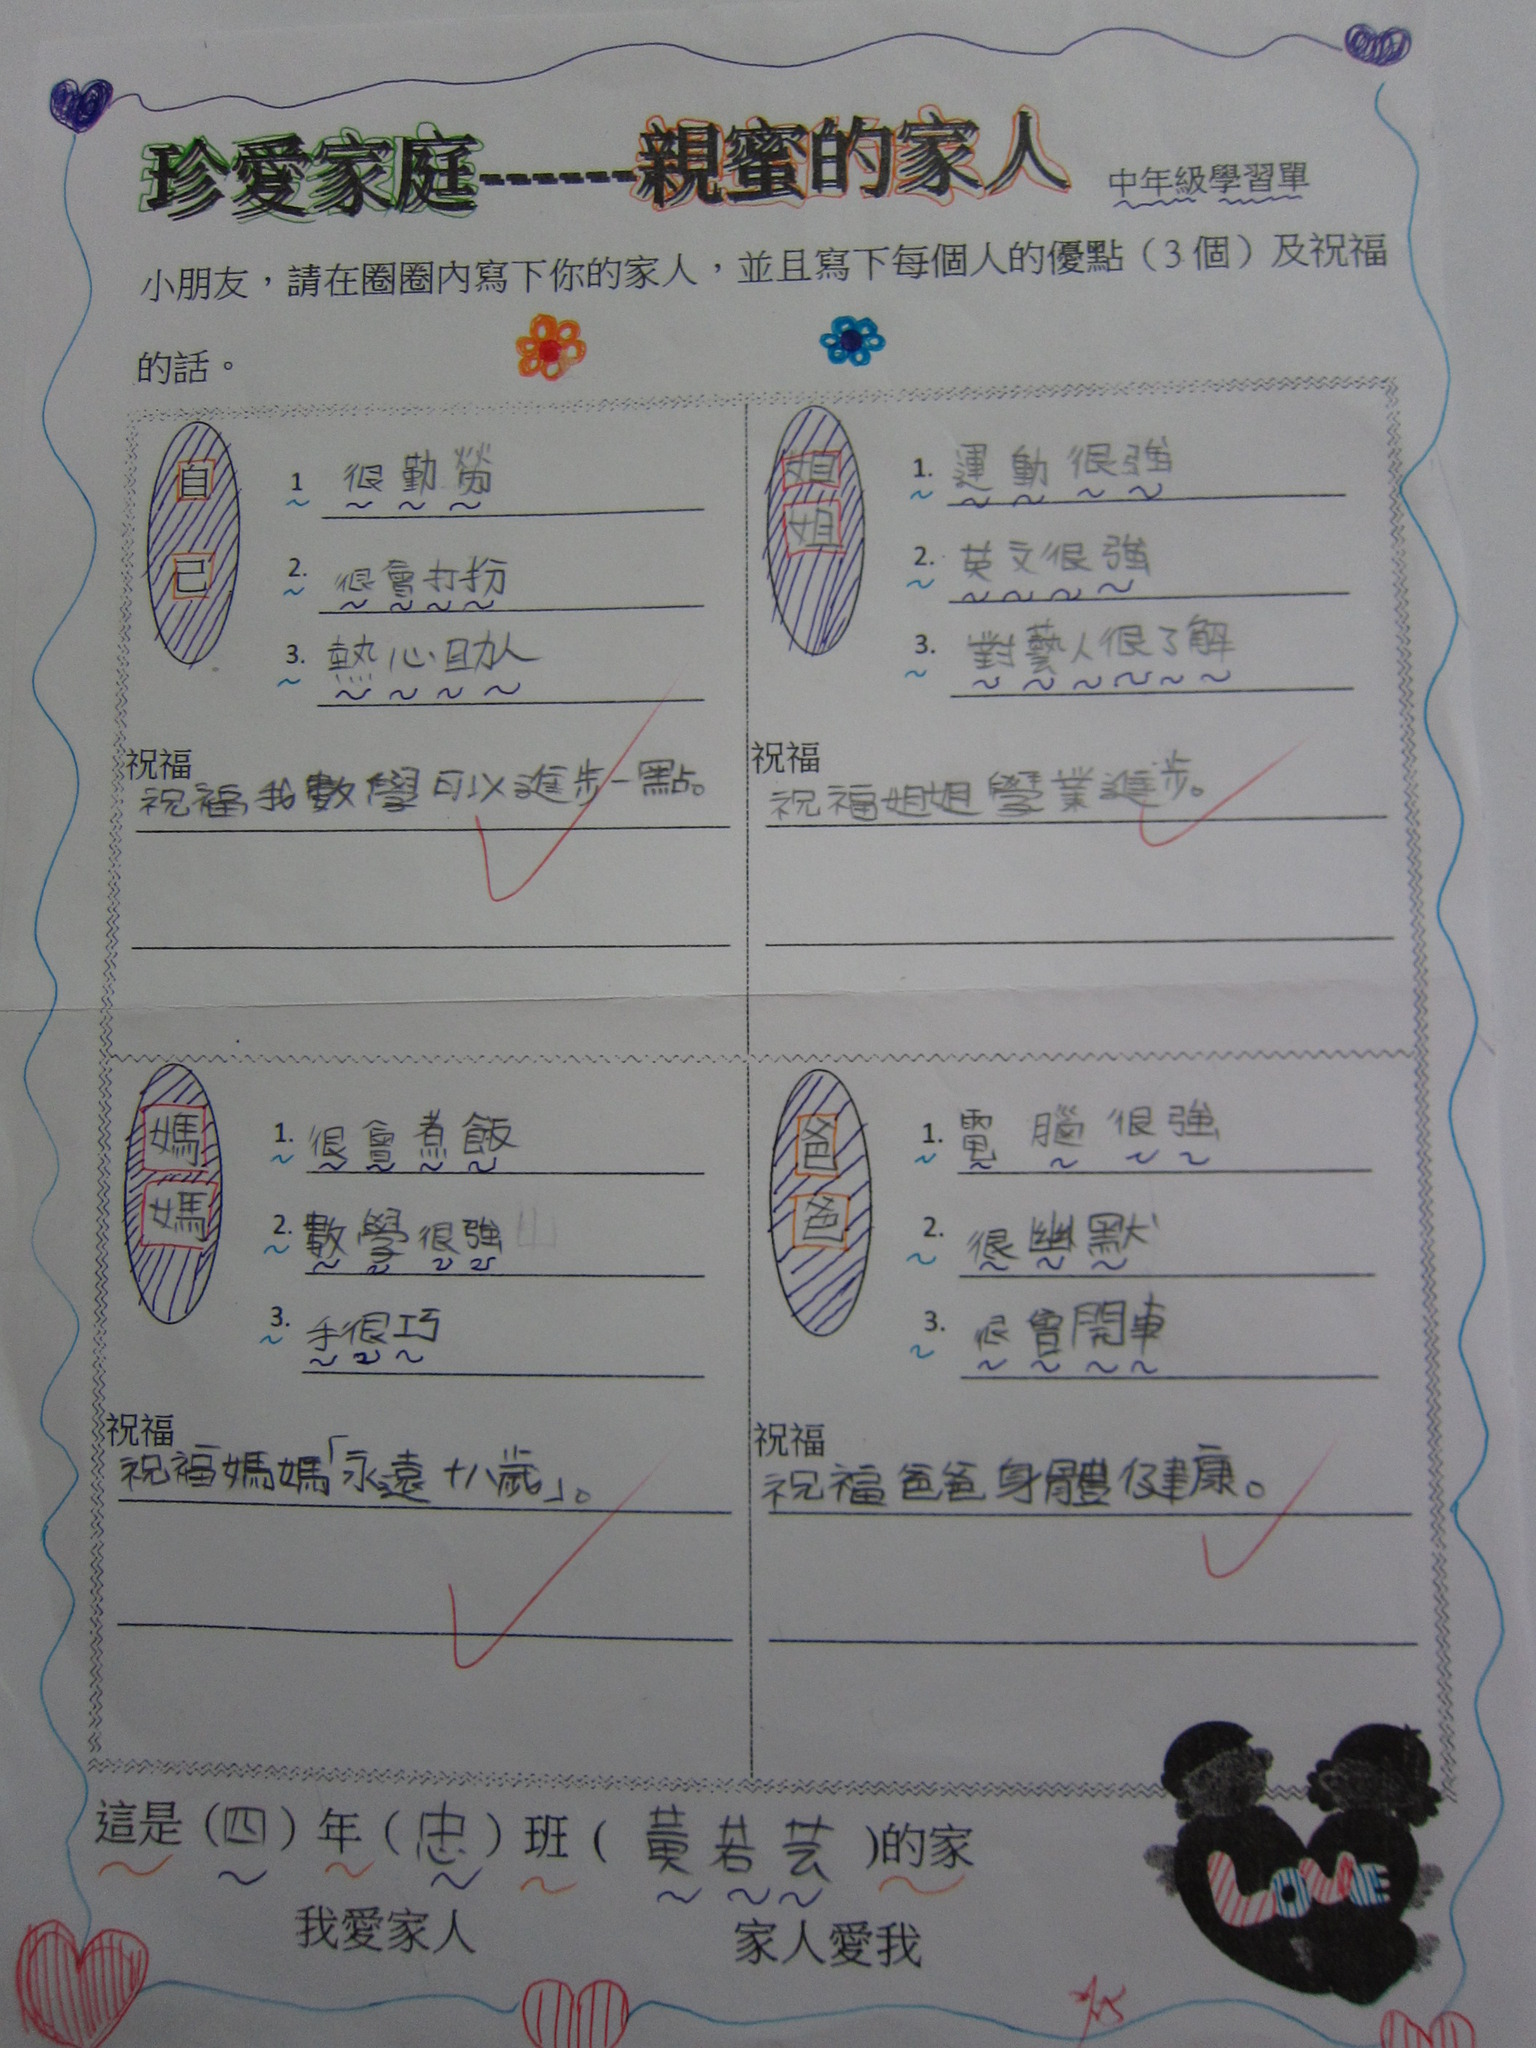 珍愛家庭------親蜜的家人 中年級學習單
小朋友，請在圈圈內寫下你的家人，並且寫下每個人的優點（3個）及祝福
的話。
自己
1 很勤勞
2. 很會打扮
3. 熱心助人
祝福
祝福我數學可以進步一點。
姐姐
1. 運動很強
2. 英文很強
3. 對藝人很了解
祝福
祝福姐姐學業進步。
媽媽
1. 很會煮飯
2. 數學很強
3. 手很巧
祝福
祝福媽媽「永遠十八歲」。
爸爸
1. 電腦很強
2. 很幽默
3. 很會開車
祝福
祝福爸爸身體健康。
這是（四）年（忠）班（黃若芸）的家
我愛家人 家人愛我
LOVE